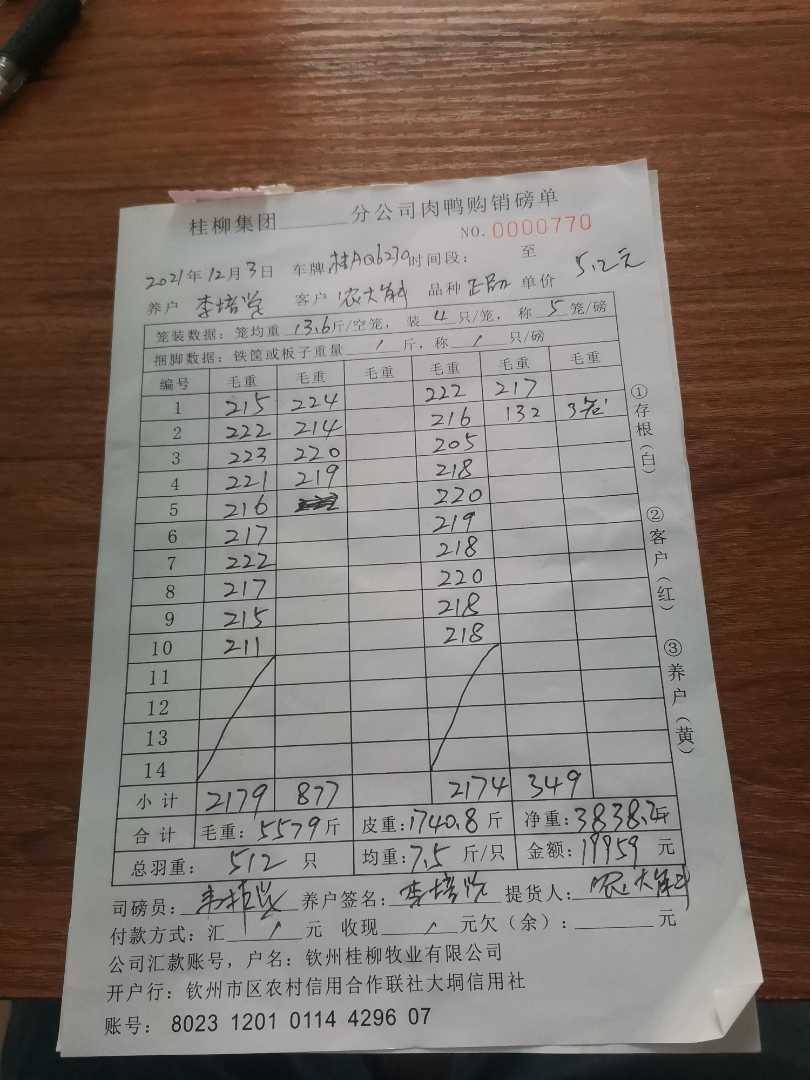 桂柳集团______分公司肉鸭购销磅单
NO. 0000770
2021年12月3日 车牌 桂AQ6230 时间段： 至
养户 李培党 客户 农大解 品种 单价 5.2元
笼装数据：笼均重 13.6 斤/空笼，装 4 只/笼，称 5 笼/磅
捆脚数据：铁筐或板子重量 / 斤，称 / 只/磅
编号 毛重 毛重 毛重 毛重 毛重 毛重
1 215 224 222 217
2 222 214 216 132 3笼
3 223 220 205
4 221 219 218
5 216 220
6 217 219
7 222 218
8 217 220
9 215 218
10 211 218
11
12
13
14
小计 2179 877 2174 349
合计 毛重：5579斤 皮重：1740.8斤 净重：3838.2斤
总羽重：512只 均重：7.5斤/只 金额：19959元
司磅员： 养户签名：李培党 提货人：农大解
付款方式：汇 / 元 收现 / 元欠（余）：______元
公司汇款账号，户名：钦州桂柳牧业有限公司
开户行：钦州市区农村信用合作联社大垌信用社
账号： 8023 1201 0114 4296 07
①存根（白）
②客户（红）
③养户（黄）